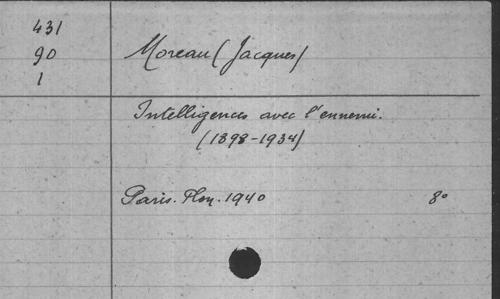 431
90
1
Moreau (Jacques)
Intelligences avec l'ennemi.
(1898-1934)
Paris. Plon. 1940 8°